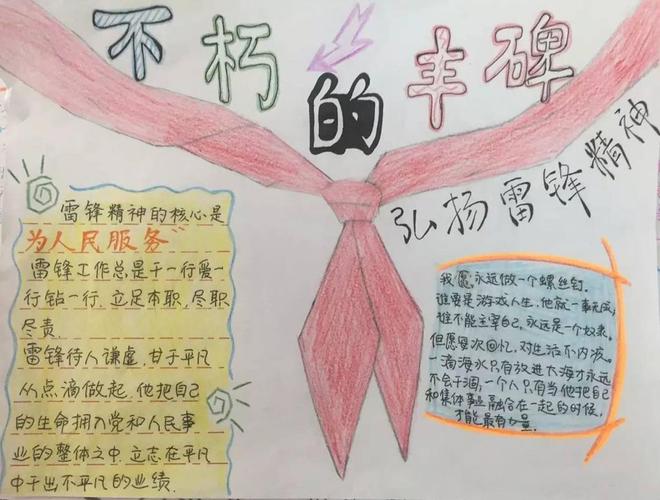 不朽的丰碑
弘扬雷锋精神
雷锋精神的核心是
为人民服务”
雷锋工作总是干一行爱一
行钻一行，立足本职，尽职
尽责.
雷锋待人谦虚，甘于平凡
从点滴做起，他把自己
的生命拥入党和人民事
业的整体之中，立志在平凡
中干出不平凡的业绩.
我愿永远做一个螺丝钉.
谁要是游戏人生，他就一事无成，
谁不能主宰自己，永远是一个奴隶。
但愿每次回忆，对生活不内疚。
一滴海水只有放进大海才永远
不会干涸，一个人只有当他把自己
和集体事业融合在一起的时候，
才能最有力量.